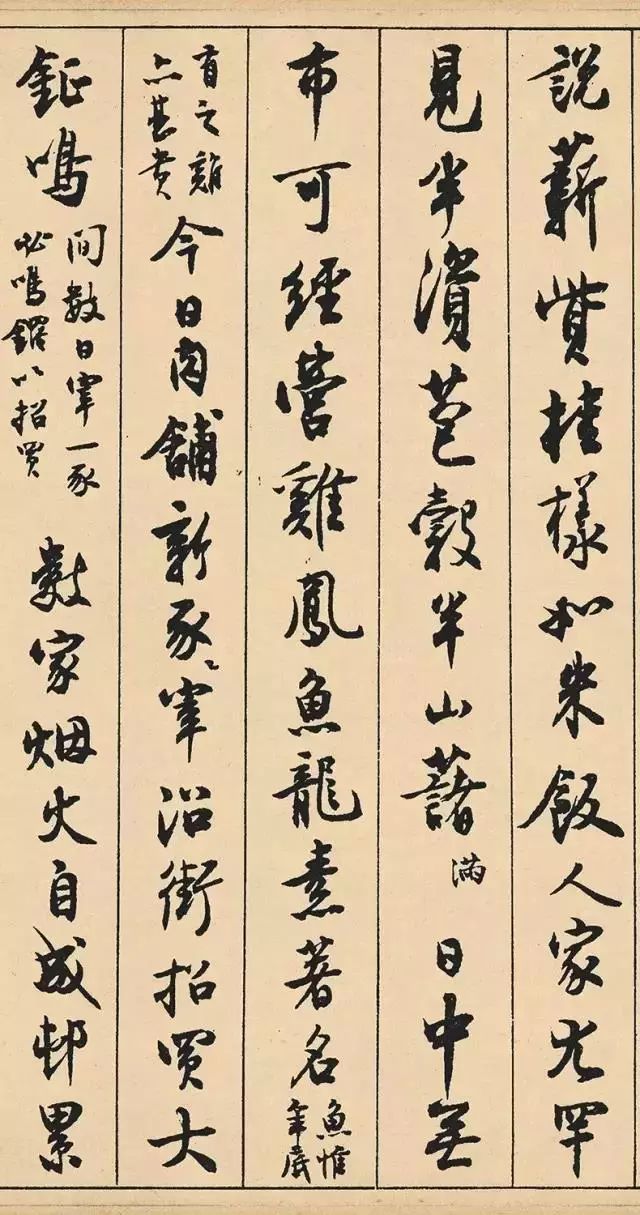 說薪貲桂樣如米飯人家尤罕
見半資苞穀半山藷滿日中無
布可經營雞鳳魚龍素著名魚惟年底
有之雞亦甚貴今日肉舖新豕宰沿街招買大
鉦鳴間數日宰一豕必鳴鑼以招買數家烟火自成邨累